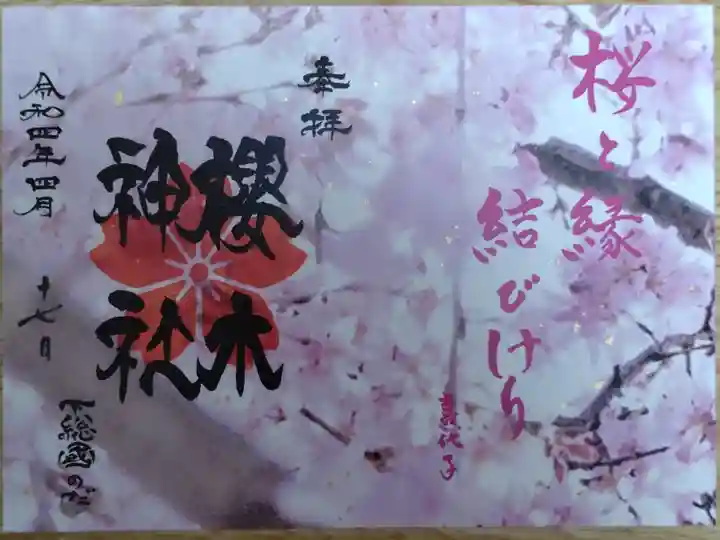 桜と縁
結びけり
喜代子
奉拝
櫻木
神社
令和四年四月
十七日
下総國のだ